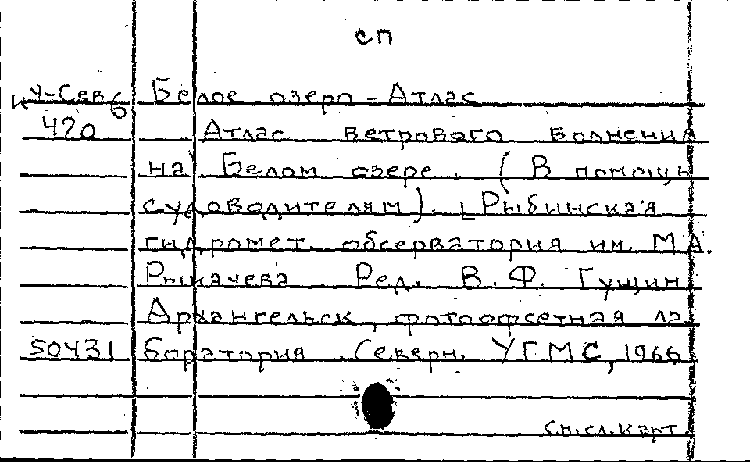 сп
У-Сев б Белое озеро - Атлас
420 Атлас ветрового волнения
на Белом озере. (В помощь
судоводителям). [Рыбинская
гидромет. обсерватория им. М.А.
Рыкачева Ред. В.Ф. Гущин
Архангельск, фотоофсетная ла-
50431 боратория Северн. УГМС, 1966
См. сл. карт.